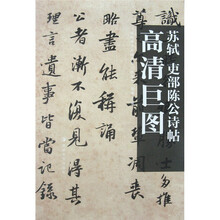 苏轼 吏部陈公诗帖
高清巨图
識
士多推
前輩凋喪
略盡能稱誦
公者漸不復見得其
理言遺事皆當記錄